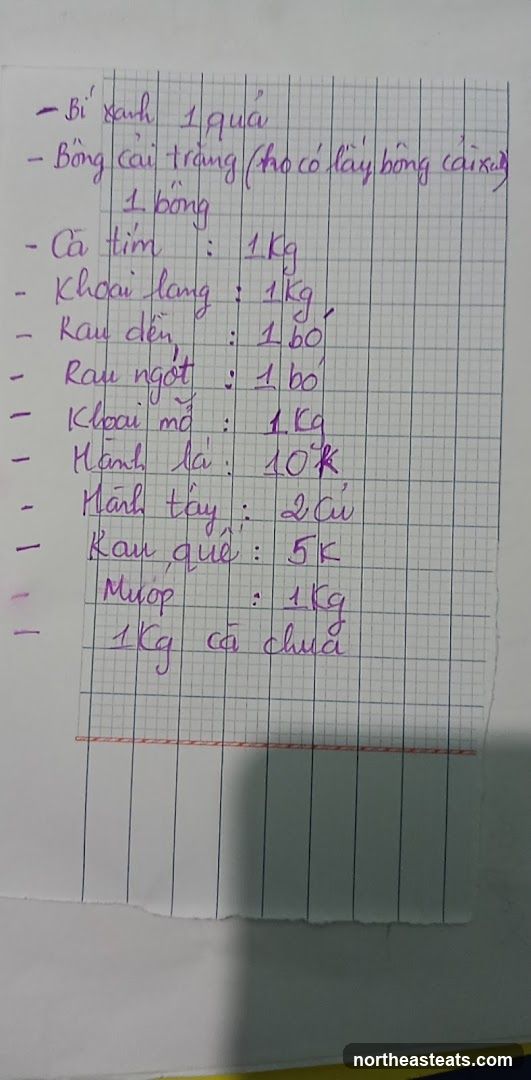 - Bí xanh 1 quả
- Bông cải trắng (ko có lấy bông cải xanh)
1 bông
- Cà tím : 1Kg
- Khoai lang : 1Kg
- Rau dền : 1 bó
- Rau ngót : 1 bó
- Khoai mỡ : 1Kg
- Hành lá : 10K
- Hành tây : 2 củ
- Rau quế : 5K
- Mướp : 1Kg
- 1Kg cà chua
northeasteats.com